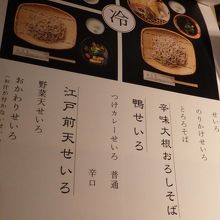 冷
せいろ
のりかけせいろ
とろろそば
辛味大根おろしそば
鴨せいろ
つけカレーせいろ 普通
辛口
江戸前天せいろ
野菜天せいろ
おかわりせいろ